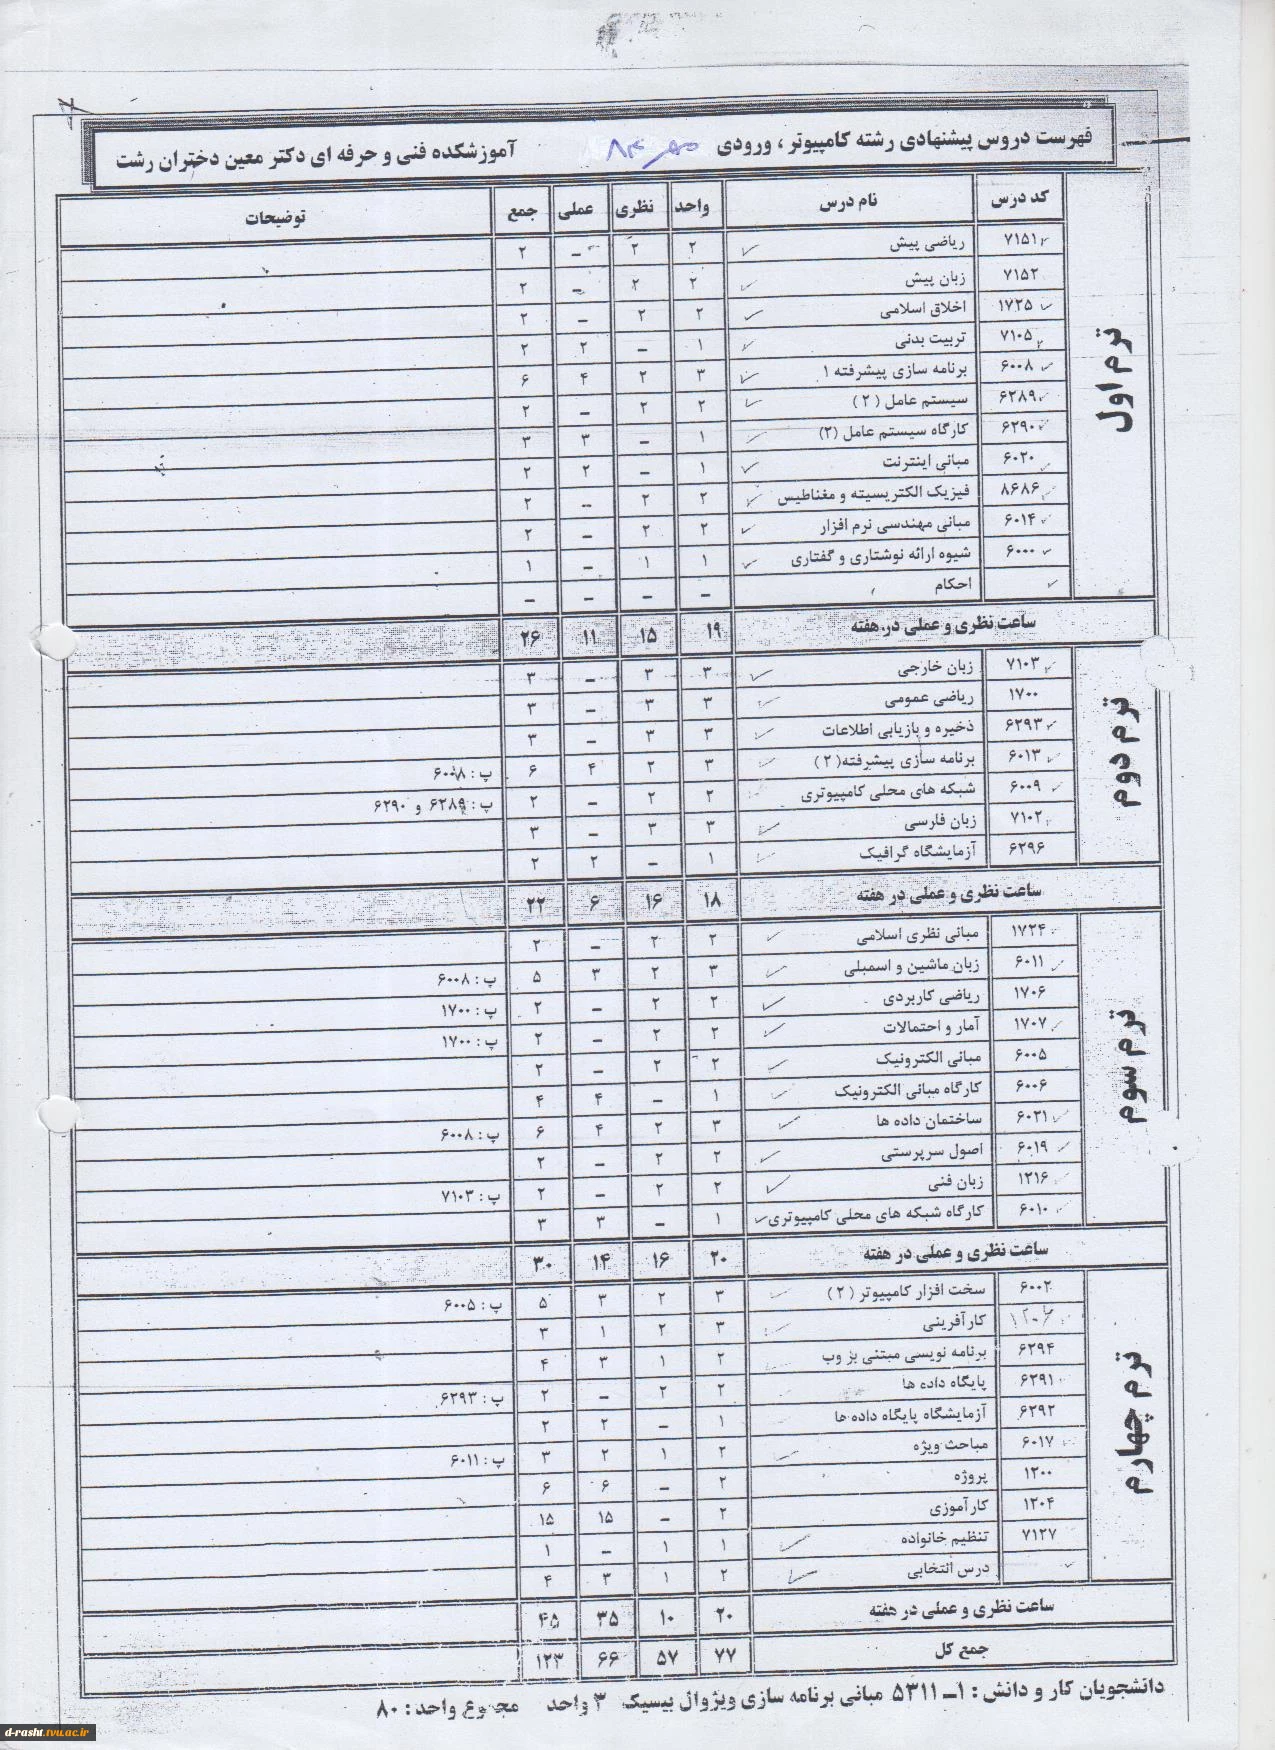 فهرست دروس پیشنهادی رشته کامپیوتر ، ورودی مهر ۸۳ آموزشکده فنی و حرفه ای دکتر معین دختران رشت
کد درس نام درس واحد نظری عملی جمع توضیحات
ترم اول
۷۱۵۱ ریاضی پیش ۲ ۲ – ۲
۷۱۵۲ زبان پیش ۲ ۲ – ۲
۱۷۲۵ اخلاق اسلامی ۲ ۲ – ۲
۷۱۰۵ تربیت بدنی ۱ – ۲ ۲
۶۰۰۸ برنامه سازی پیشرفته ۱ ۳ ۲ ۴ ۶
۶۲۸۹ سیستم عامل ( ۲ ) ۲ ۲ – ۲
۶۲۹۰ کارگاه سیستم عامل (۲) ۱ – ۳ ۳
۶۰۲۰ مبانی اینترنت ۱ – ۲ ۲
۸۶۸۶ فیزیک الکتریسیته و مغناطیس ۲ ۲ – ۲
۶۰۱۴ مبانی مهندسی نرم افزار ۲ ۲ – ۲
۶۰۰۰ شیوه ارائه نوشتاری و گفتاری ۱ ۱ – ۱
احکام – – – –
ساعت نظری و عملی در هفته ۱۹ ۱۵ ۱۱ ۲۶
ترم دوم
۷۱۰۳ زبان خارجی ۳ ۳ – ۳
۱۷۰۰ ریاضی عمومی ۳ ۳ – ۳
۶۲۹۳ ذخیره و بازیابی اطلاعات ۳ ۳ – ۳
۶۰۱۳ برنامه سازی پیشرفته( ۲ ) ۳ ۲ ۴ ۶ پ : ۶۰۰۸
۶۰۰۹ شبکه های محلی کامپیوتری ۲ ۲ – ۲ پ : ۶۲۸۹ و ۶۲۹۰
۷۱۰۲ زبان فارسی ۳ ۳ – ۳
۶۲۹۶ آزمایشگاه گرافیک ۱ – ۲ ۲
ساعت نظری و عملی در هفته ۱۸ ۱۶ ۶ ۲۲
ترم سوم
۱۷۲۴ مبانی نظری اسلامی ۲ ۲ – ۲
۶۰۱۱ زبان ماشین و اسمبلی ۳ ۲ ۳ ۵ پ : ۶۰۰۸
۱۷۰۶ ریاضی کاربردی ۲ ۲ – ۲ پ : ۱۷۰۰
۱۷۰۷ آمار و احتمالات ۲ ۲ – ۲ پ : ۱۷۰۰
۶۰۰۵ مبانی الکترونیک ۲ ۲ – ۲
۶۰۰۶ کارگاه مبانی الکترونیک ۱ – ۴ ۴
۶۰۲۱ ساختمان داده ها ۳ ۲ ۴ ۶ پ : ۶۰۰۸
۶۰۱۹ اصول سرپرستی ۲ ۲ – ۲
۱۲۱۶ زبان فنی ۲ ۲ – ۲ پ : ۷۱۰۳
۶۰۱۰ کارگاه شبکه های محلی کامپیوتری ۱ – ۳ ۳
ساعت نظری و عملی در هفته ۲۰ ۱۶ ۱۴ ۳۰
ترم چهارم
۶۰۰۲ سخت افزار کامپیوتر ( ۲ ) ۳ ۲ ۳ ۵ پ : ۶۰۰۵
کارآفرینی ۳ ۲ ۱ ۳
۶۲۹۴ برنامه نویسی مبتنی بر وب ۲ ۱ ۳ ۴
۶۲۹۱ پایگاه داده ها ۲ ۲ – ۲ پ : ۶۲۹۳
۶۲۹۲ آزمایشگاه پایگاه داده ها ۱ – ۲ ۲
۶۰۱۷ مباحث ویژه ۲ ۱ ۲ ۳ پ : ۶۰۱۱
۱۲۰۰ پروژه ۲ – ۶ ۶
۱۲۰۴ کارآموزی ۲ – ۱۵ ۱۵
۷۱۲۷ تنظیم خانواده ۱ ۱ – ۱
درس انتخابی ۲ ۱ ۳ ۴
ساعت نظری و عملی در هفته ۲۰ ۱۰ ۳۵ ۴۵
جمع کل ۷۷ ۵۷ ۶۶ ۱۲۳
دانشجویان کار و دانش : ۱ــ۵۳۱۱ مبانی برنامه سازی ویژوال بیسیک ۳ واحد مجموع واحد : ۸۰
d-rasht.tvu.ac.ir